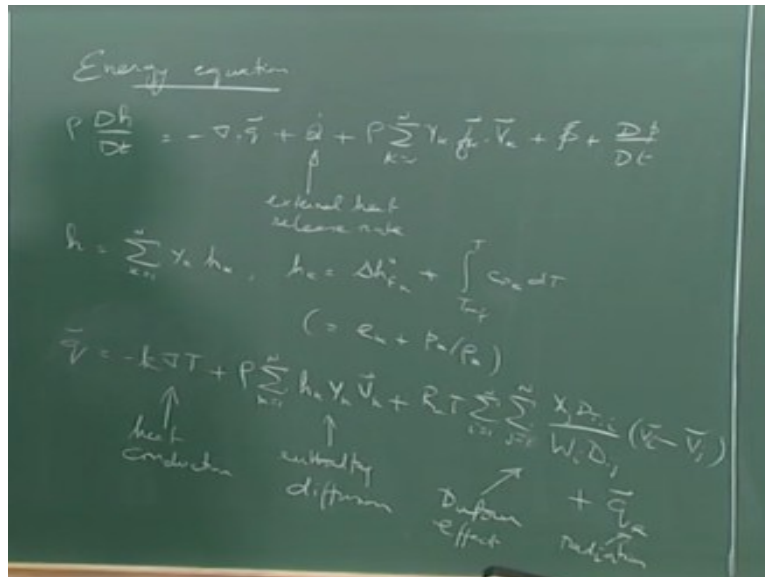 Energy equation
ρ Dh/Dt = -∇·q̄ + Q̇ + ρ Σ_{k=1}^{N} Y_k f̄_k·V̄_k + Φ + Dp/Dt
external heat
release rate
h = Σ_{k=1}^{N} Y_k h_k, h_k = Δh°_{f_k} + ∫_{T_ref}^{T} c_{p_k} dT
(= e_k + p_k/ρ_k)
q̄ = -k∇T + ρ Σ_{k=1}^{N} h_k Y_k V̄_k + R_u T Σ_{i=1}^{N} Σ_{j=1}^{N} (X_j D_{T,i})/(W_i D_{ij}) (V̄_i - V̄_j)
+ q̄_R
heat
conduction
enthalpy
diffusion
Dufour
effect
radiation